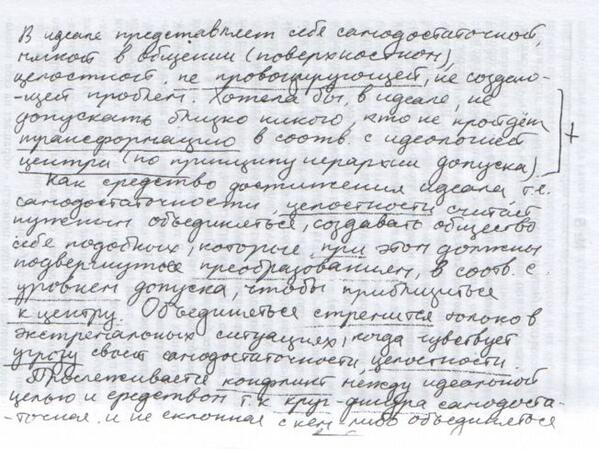 В идеале представляет себя самодостаточной,
мягкой в общении (поверхностном),
целостной, не провоцирующей, не создаю-
-щей проблем. Хотела бы, в идеале, не
допускать близко никого, кто не пройдёт
трансформацию в соотв. с идеологией
центра (по принципу иерархии допуска). +
Как средство достижения идеала т.е.
самодостаточности, целостности считает
нужным объединяться, создавать общество
себе подобных, которые при этом должны
подвергнуться преобразованиям, в соотв. с
уровнем допуска, чтобы приблизиться
к центру. Объединяться стремится только в
экстремальных ситуациях, когда чувствует
угрозу своей самодостаточности, целостности.
Прослеживается конфликт между идеальной
целью и средством т.к. круг-фигура самодоста-
-точная и не склонная с кем-либо объединяться